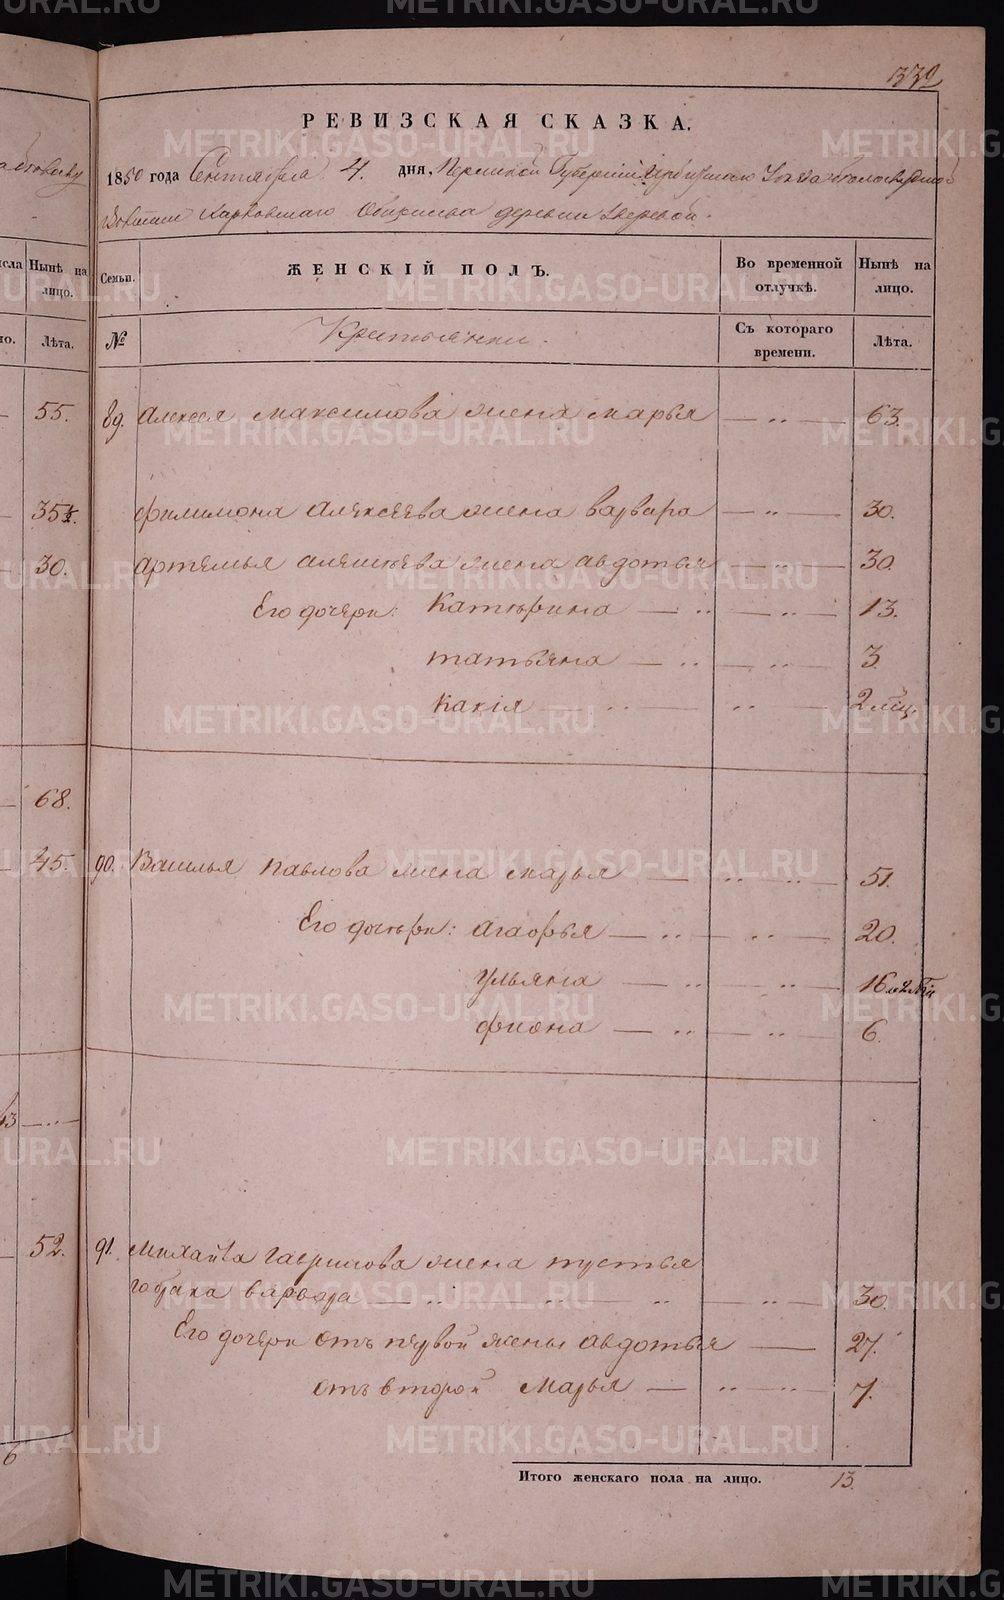 332
РЕВИЗСКАЯ СКАЗКА.
1850 года Сентября 4. дня, Пермской Губернiи Ирбитскаго Уезда
Волости Харловскаго деревни Зверевой.
Семьи. ЖЕНСКIЙ ПОЛЪ. Во временной отлучкѣ. Нынѣ на лицо.
№ Крестьянки. Съ котораго времени. Лѣта.
89. Алексея Максимова жена Марья — „ — 63.
Филимона Алексеева жена Варвара — „ — 30.
Артемья Алексеева жена Авдотья — „ — 30.
Его дочери: Катерина — „ — „ — 13.
Татьяна — „ — „ — 3
2 мѣц.
90. Василья Павлова жена Марья — „ — „ — 51.
Его дочери: Агафья — „ — „ — 20.
Ульяна — „ — „ — 16
Фиона — „ — „ — 6.
91. Михайла Гаврилова жена третья
брака Варвара — „ — „ — „ — 30.
Его дочери отъ первой жены Авдотья — 27.
отъ второй Марья — „ — „ — 7.
Итого женскаго пола на лицо. 13.
Нынѣ на лицо.
Лѣта.
55.
35
30.
68.
45.
13 — „ —
52.
6
METRIKI.GASO-URAL.RU